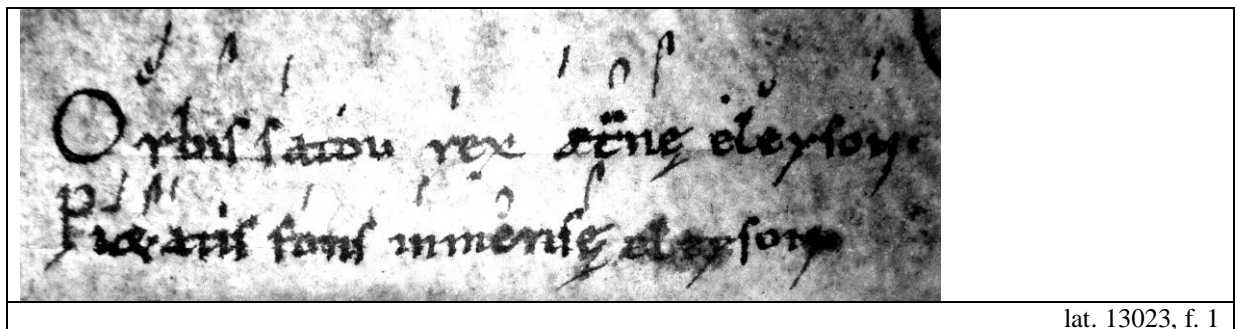 Orbis sator rex ęt̄nę eleyson.
Pi&atis fons inmensę eleyson
lat. 13023, f. 1